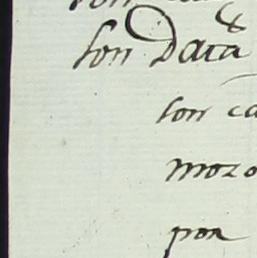 son Data
son ca
mozo
por